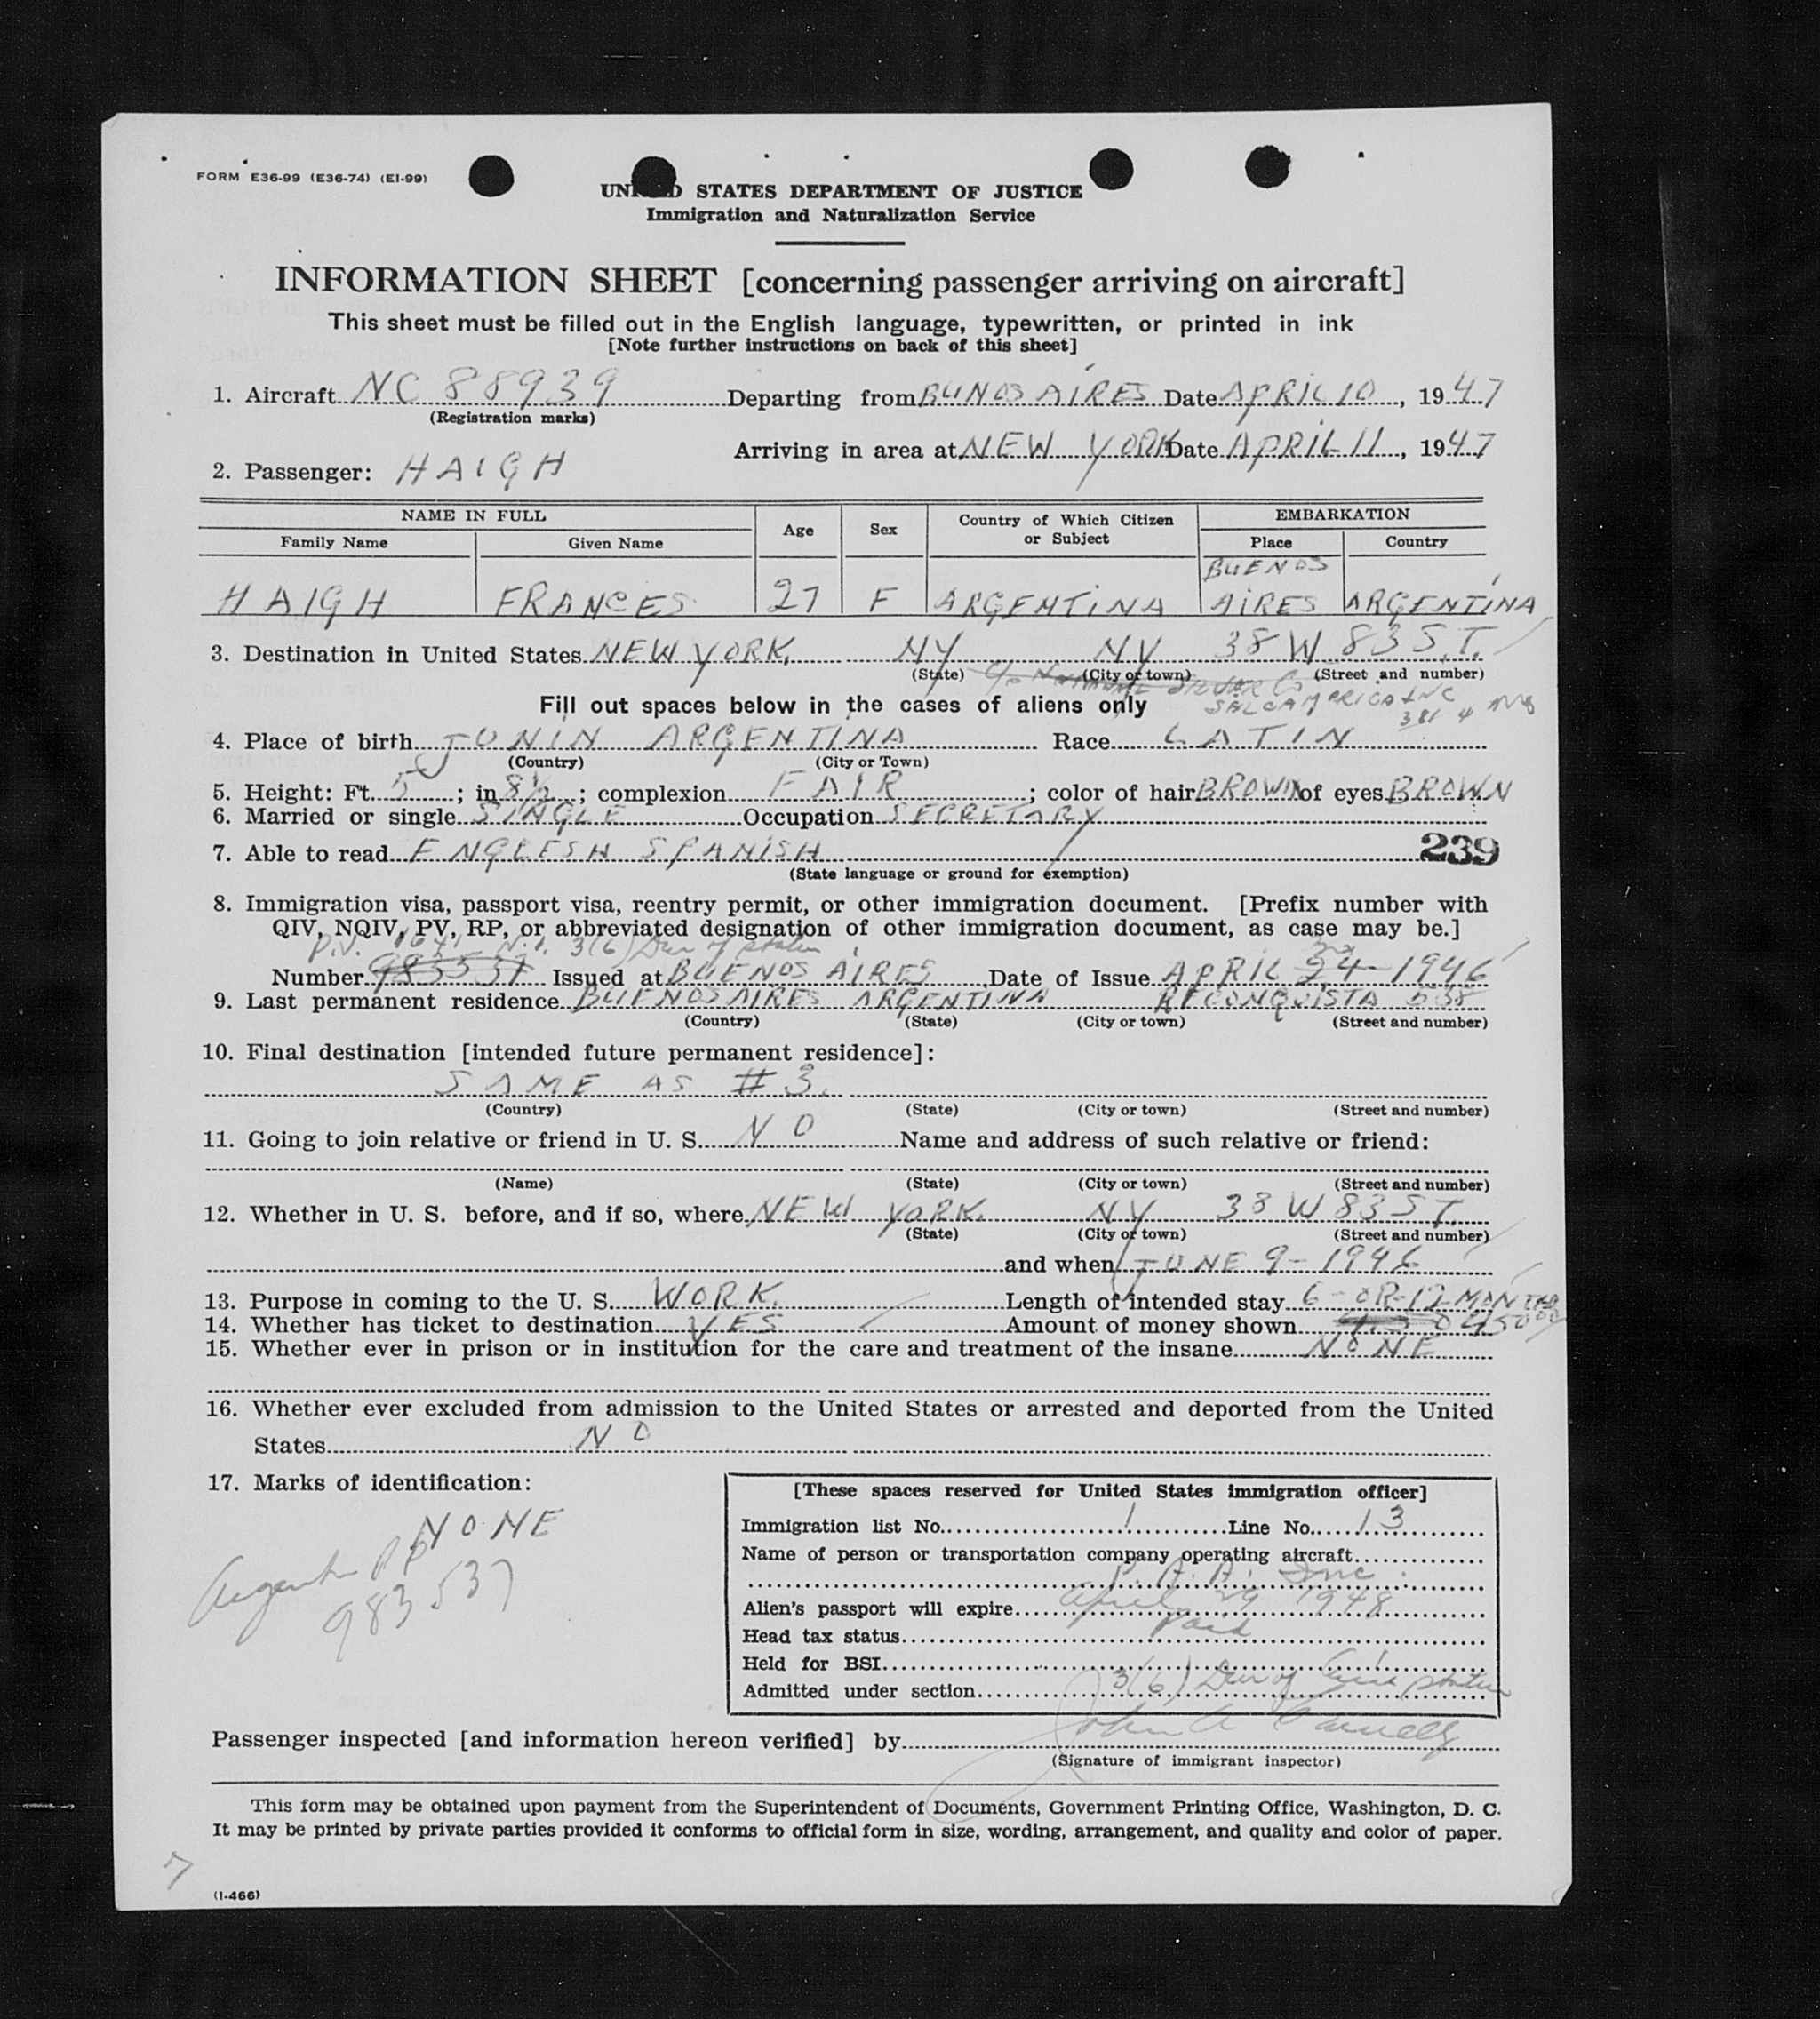 FORM E36-99 (E36-74) (EI-99)
UNITED STATES DEPARTMENT OF JUSTICE
Immigration and Naturalization Service
INFORMATION SHEET [concerning passenger arriving on aircraft]
This sheet must be filled out in the English language, typewritten, or printed in ink
[Note further instructions on back of this sheet]
1. Aircraft NC 88939 Departing from BUNOS AIRES Date APRIL 10, 1947
(Registration marks)
Arriving in area at NEW YORK Date APRIL 11, 1947
2. Passenger: HAIGH
NAME IN FULL Age Sex Country of Which Citizen or Subject EMBARKATION
Family Name Given Name Place Country
HAIGH FRANCES 27 F ARGENTINA BUENOS AIRES ARGENTINA
3. Destination in United States NEW YORK. NY NY 38 W 83 S.T.
(State) (City or town) (Street and number)
Fill out spaces below in the cases of aliens only
4. Place of birth JUNIN ARGENTINA Race LATIN
(Country) (City or Town)
5. Height: Ft. 5; in 8½; complexion FAIR; color of hair BROWN of eyes BROWN
6. Married or single SINGLE Occupation SECRETARY
7. Able to read ENGLESH SPANISH 239
(State language or ground for exemption)
8. Immigration visa, passport visa, reentry permit, or other immigration document. [Prefix number with
QIV, NQIV, PV, RP, or abbreviated designation of other immigration document, as case may be.]
P.V. 3(6)
Number 983537 Issued at BUENOS AIRES Date of Issue APRIL 24-1946
9. Last permanent residence BUENOS AIRES ARGENTINA RECONQUISTA 538
(Country) (State) (City or town) (Street and number)
10. Final destination [intended future permanent residence]:
SAME AS #3.
(Country) (State) (City or town) (Street and number)
11. Going to join relative or friend in U. S. NO Name and address of such relative or friend:
(Name) (State) (City or town) (Street and number)
12. Whether in U. S. before, and if so, where NEW YORK. NY 38 W 83 S T.
(State) (City or town) (Street and number)
and when JUNE 9-1946
13. Purpose in coming to the U. S. WORK. Length of intended stay 6-OR-12 MONTHS
14. Whether has ticket to destination YES Amount of money shown
15. Whether ever in prison or in institution for the care and treatment of the insane NONE
16. Whether ever excluded from admission to the United States or arrested and deported from the United
States NO
17. Marks of identification:
NONE
983537
[These spaces reserved for United States immigration officer]
Immigration list No. 1 Line No. 13
Name of person or transportation company operating aircraft
P. A. A. Inc.
Alien's passport will expire April 29 1948
Head tax status Paid
Held for BSI
Admitted under section 3(6)
Passenger inspected [and information hereon verified] by John A
(Signature of immigrant inspector)
This form may be obtained upon payment from the Superintendent of Documents, Government Printing Office, Washington, D. C.
It may be printed by private parties provided it conforms to official form in size, wording, arrangement, and quality and color of paper.
7
(I-466)